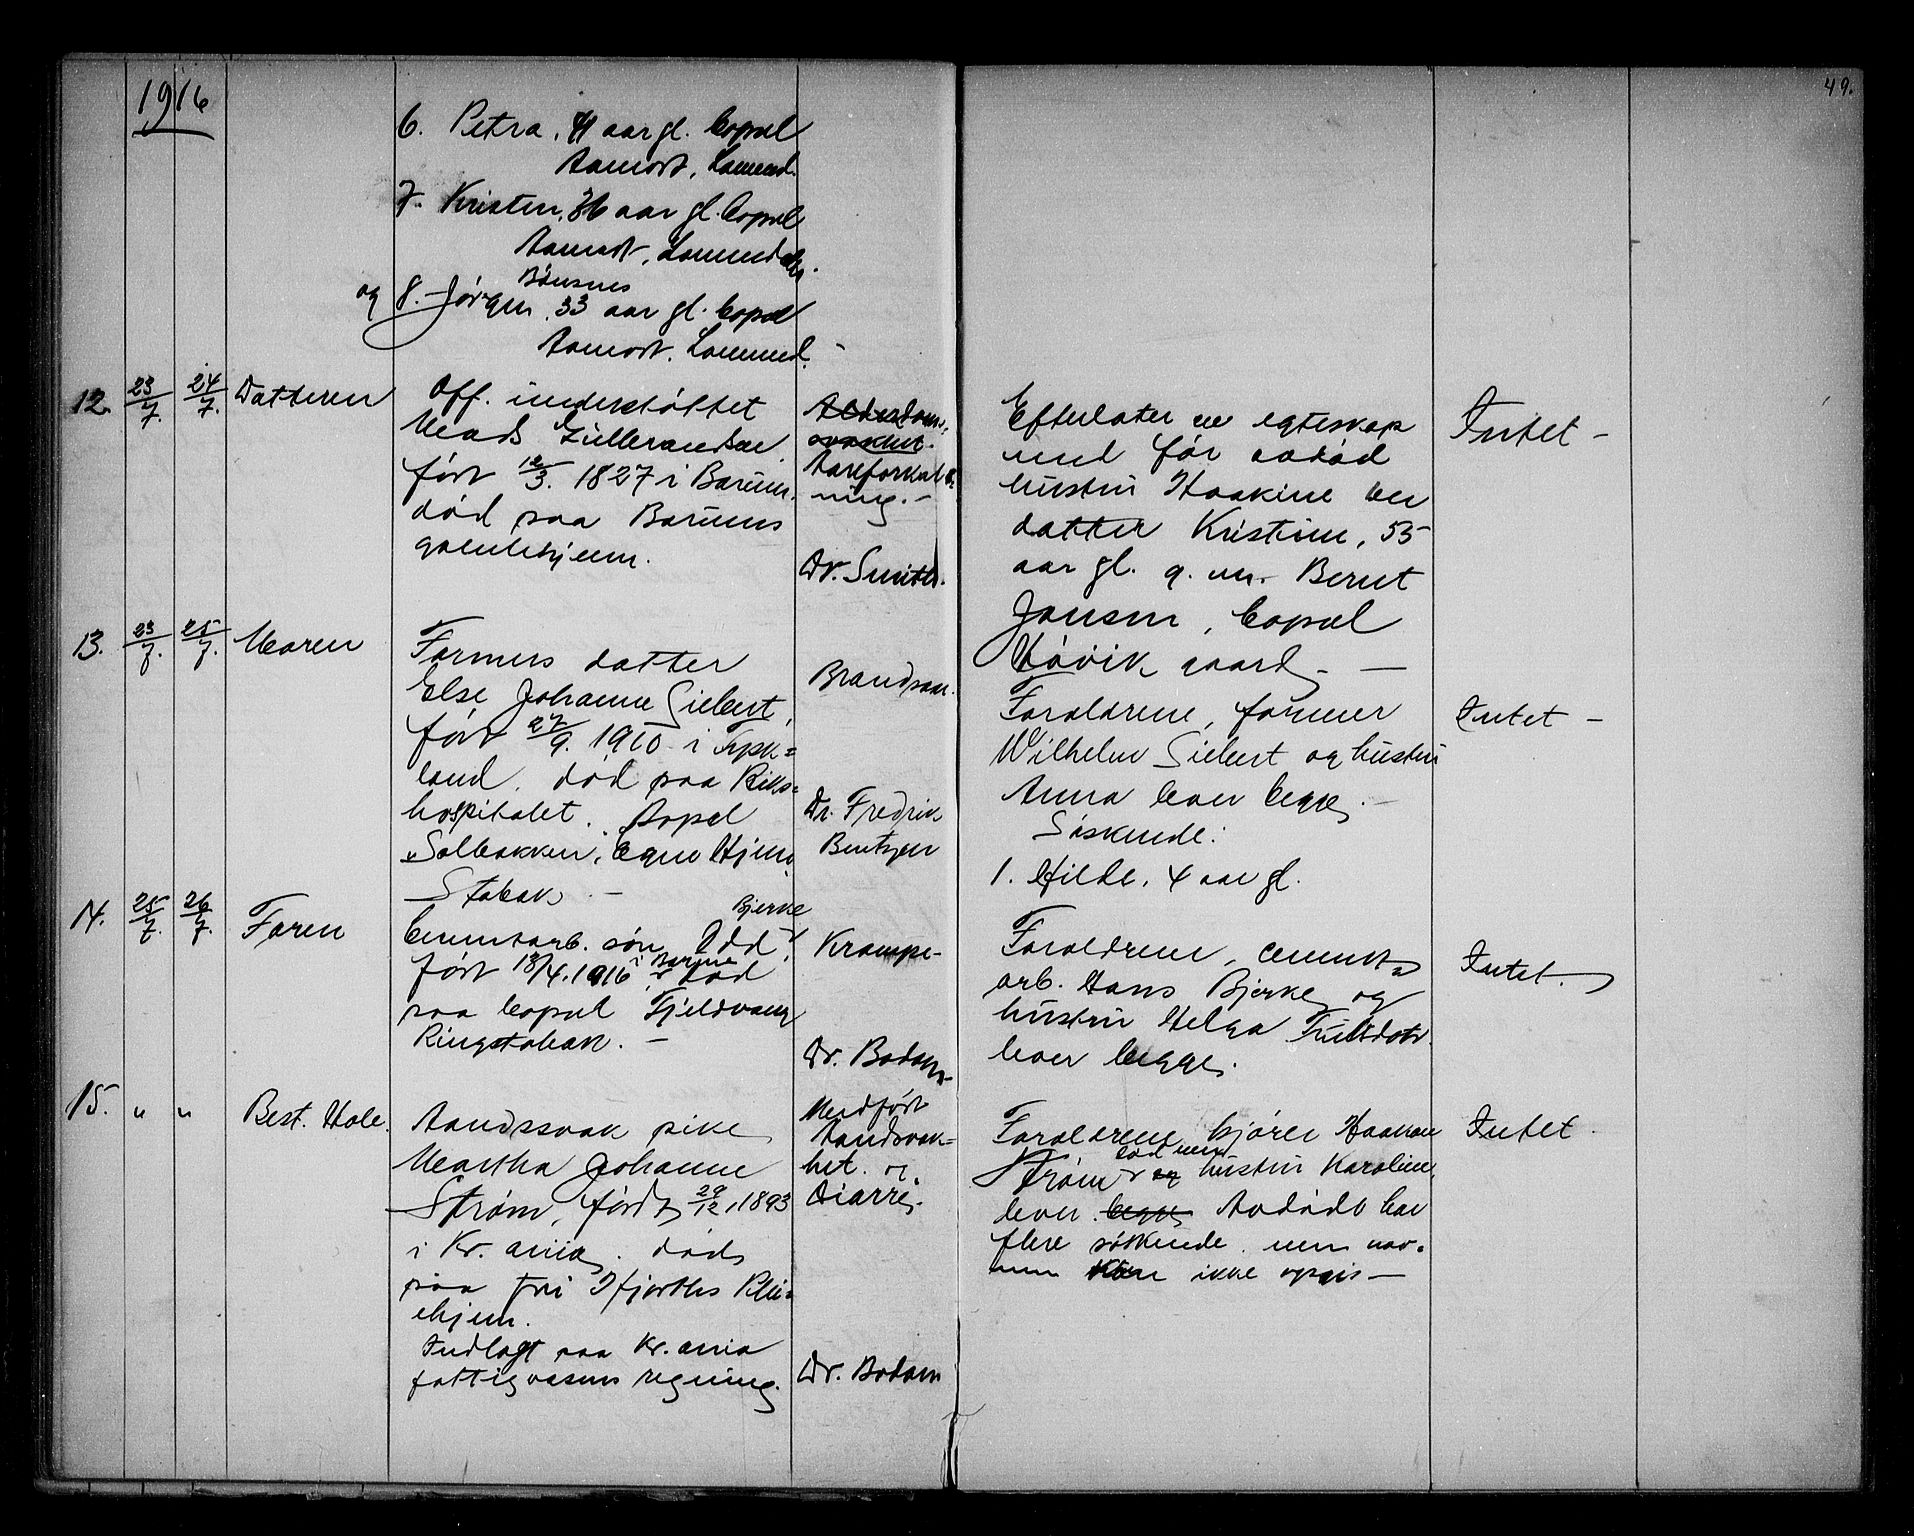 49.
1916
6. Petra, 41 aar gl. bopæl
Aamodt, Lommed.
7. Kristen, 36 aar gl. bopæl
Aamodt, Lommed
Bönsnes
og 8. Jörgen, 33 aar gl. bopæl
Aamodt, Lommed. -
12. 23/7. 24/7. Datteren
Off. understöttet
Mads Gulleransen
födt 12/3. 1827 i Bærum.
död paa Bærums
gamlehjem.
Alderdoms-
svakhet.
Aareforkalk-
ning. -
Dr. Smith.
Efterlater av egteskap
med för avdöd
hustru Haakine en
datter Kristine, 55
aar gl. g. m. Bernt
Jansen, bopæl
Hövik gaard. -
Intet -
13. 23/7. 25/7. Moren
Farmers datter
Else Johanne Siebert,
född 27/9. 1910 i Tysk-
land, död paa Riks-
hospitalet. Bopæl
"Solbakken", Egne Hjem
Stabæk. -
Brandsaar.
Dr. Fredrik
Bentzen
Forældrene, farmer
Wilhelm Siebert og hustru
Anna lever begge. -
Söskende:
1. Hilde, 4 aar gl.
Intet -
14. 25/7. 26/7. Faren
Bjerke
Cementarb. sön Odd
födt 13/4. 1916 i Bærum död
paa bopæl Fjeldvang
Ringstabæk. -
Krampe -
Dr. Bodom
Forældrene, cement-
arb. Hans Bjerke og
hustru Helga
lever begge.
Intet.
15. " " Best. Hole.
Aandssvak pike
Martha Johanne
Ström, född 29/12. 1893
i Kr.ania, död
paa fru Hjorths Plei-
ehjem.
Indlagt paa Kr.ania
fattigvæsens regning.
Medfödt
Aandsvak-
het og
Diarré.
Dr. Bodom
Forældrene kjörer Haakon
död men
Ström og hustru Karoline
lever begge Avdöde har
flere söskende men nav-
nene kan ikke opgis -
Intet